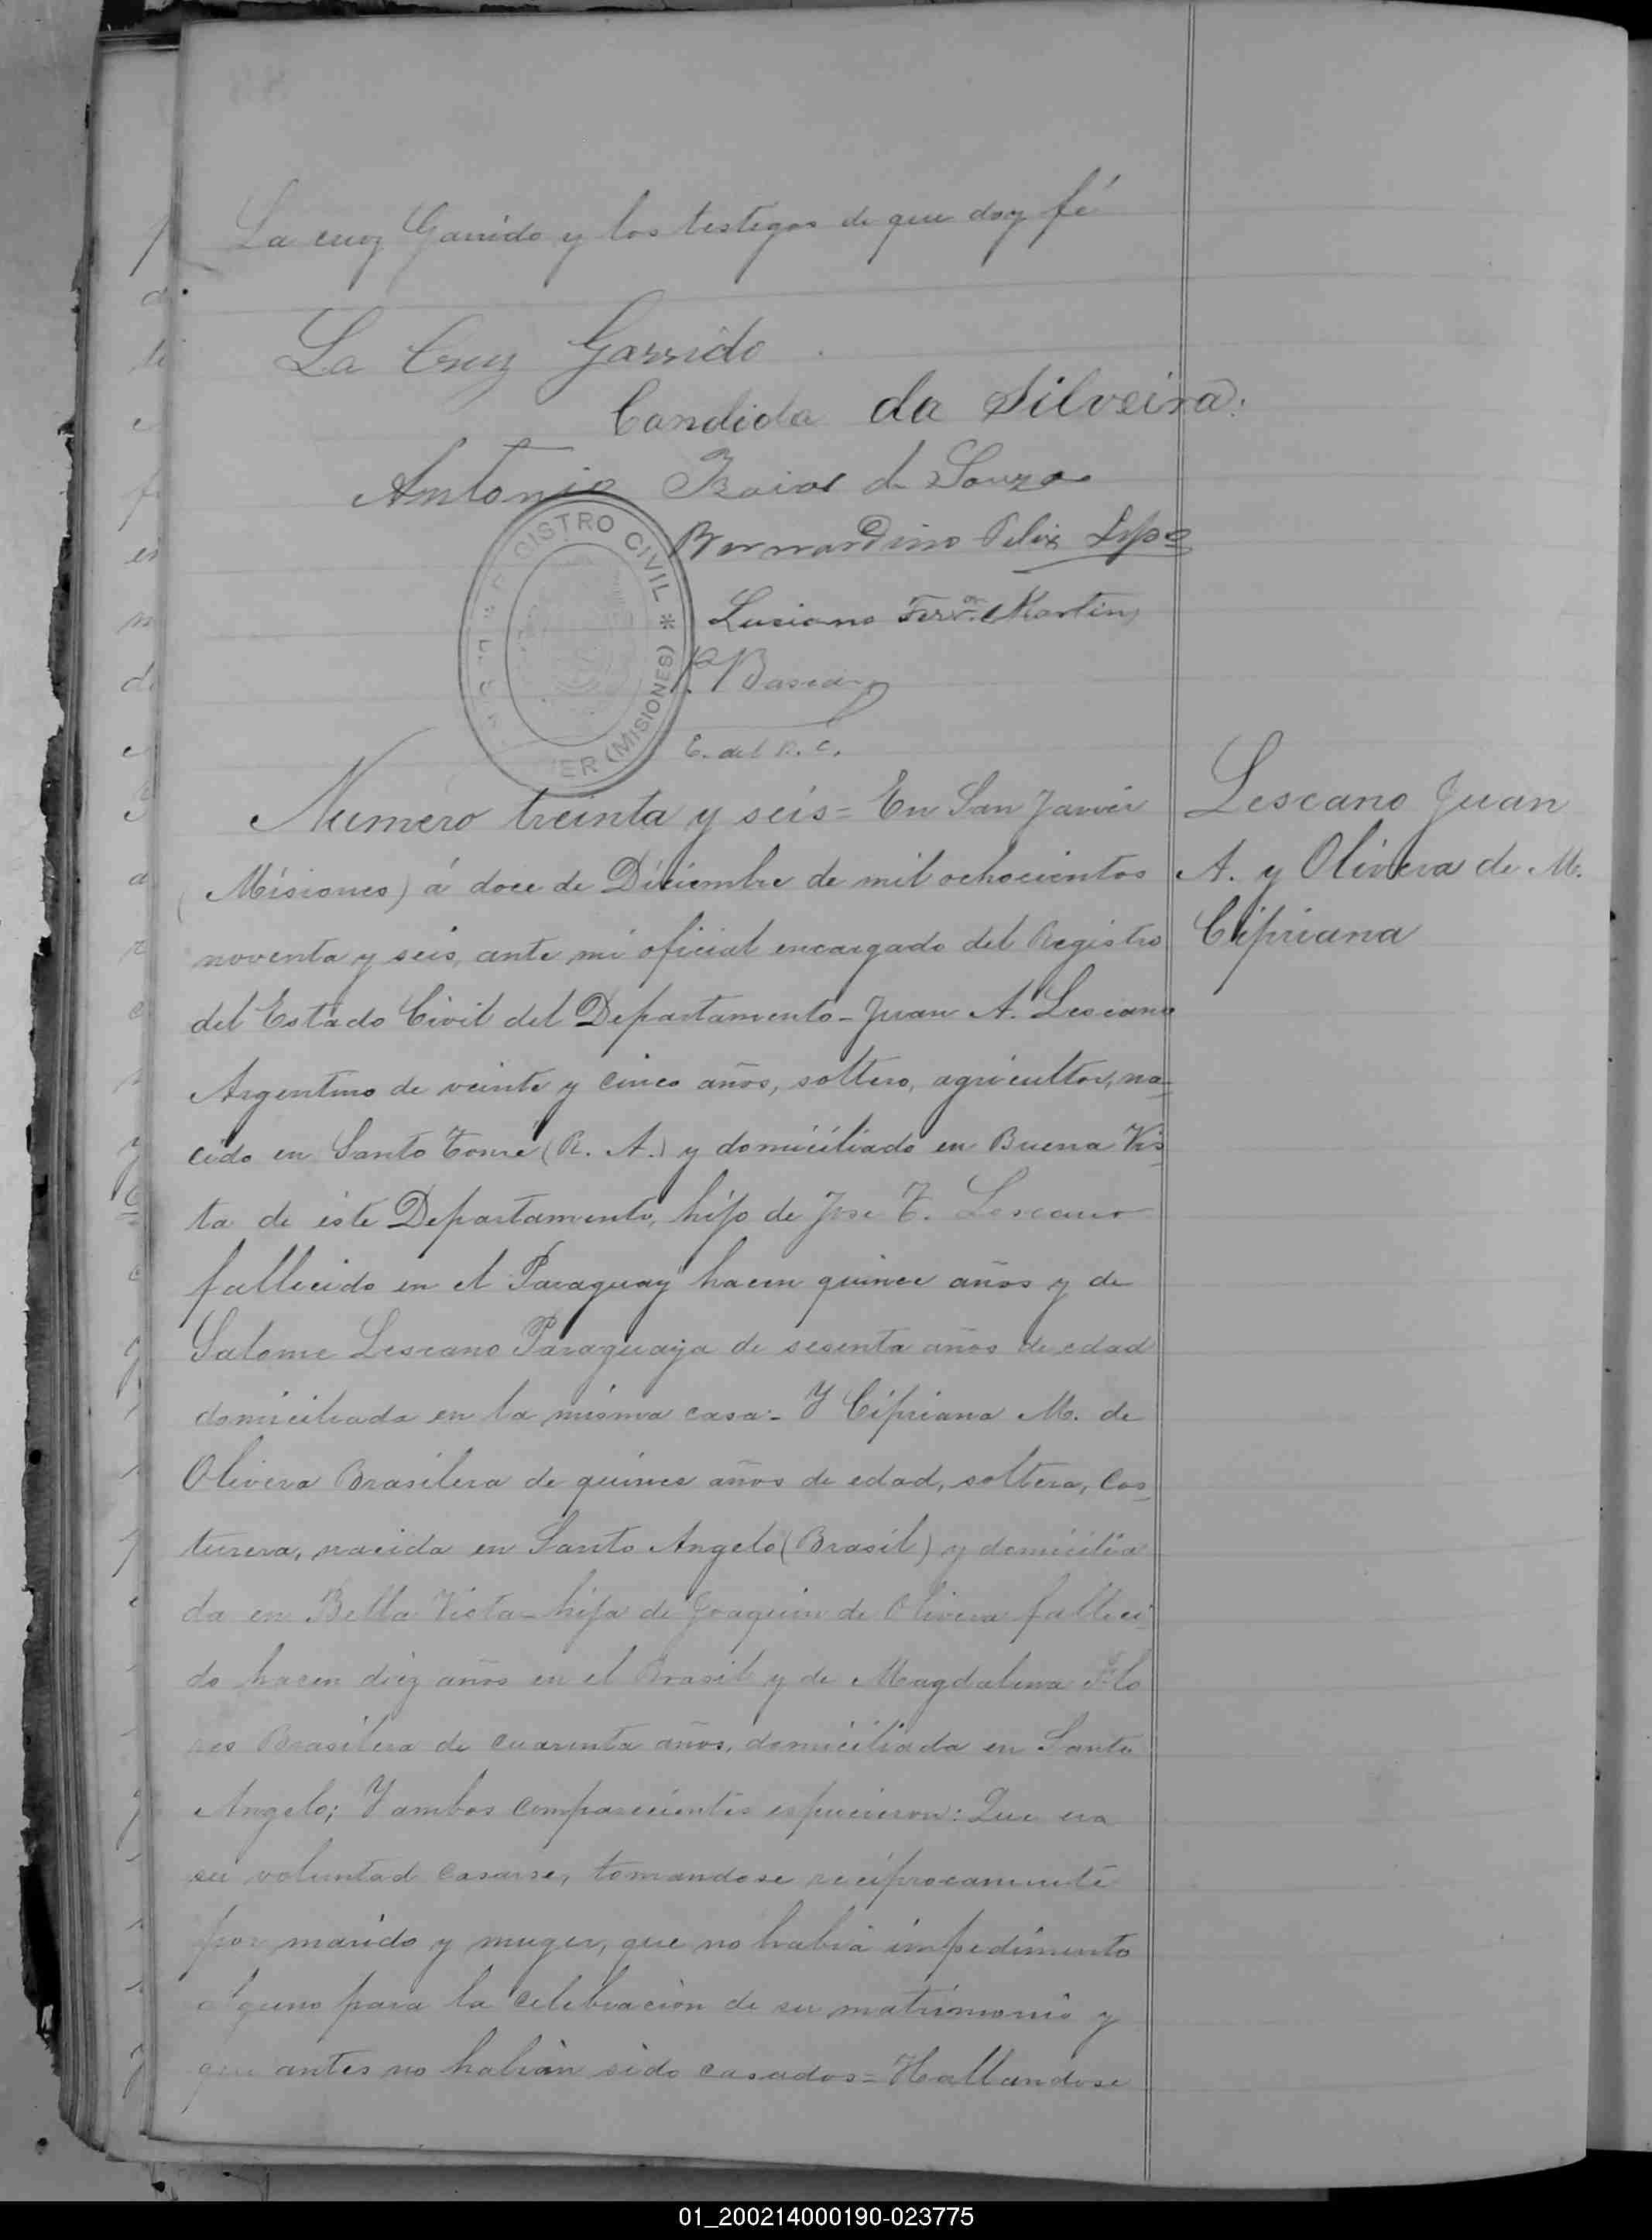 La cruz Garrido y los testigos de que doy fé
La Cruz Garrido
Candida da Silveira.
Antonio de Souza
Bernardino Felix
Luciano Martins
E. del R. C.
REGISTRO CIVIL * (MISIONES)
Numero treinta y seis = En San Javier
(Misiones) á doce de Diciembre de mil ochocientos
noventa y seis, ante mi oficial encargado del Registro
del Estado Civil del Departamento - Juan A. Lescano
Argentino de veinte y cinco años, soltero, agricultor, na-
cido en Santo Tomé (R. A.) y domiciliado en Buena Vis-
ta de este Departamento, hijo de Jose T. Lescano
fallecido en el Paraguay hacen quince años y de
Salome Lescano Paraguaya de sesenta años de edad
domiciliada en la misma casa - Y Cipriana M. de
Olivera Brasilera de quince años de edad, soltera, cos-
turera, nacida en Santo Angelo (Brasil) y domicilia
da en Bella Vista - hija de Joaquin de Olivera falleci-
do hacen diez años en el Brasil y de Magdalena Flo
res Brasilera de cuarenta años, domiciliada en Santo
Angelo; Y ambos comparecientes espucieron: Que era
su voluntad casarse, tomandose reciprocamente
por marido y muger, que no habia impedimento
alguno para la celebracion de su matrimonio y
que antes no habian sido casados = Hallandose
Lescano Juan
A. y Olivera de M.
Cipriana
01_200214000190-023775